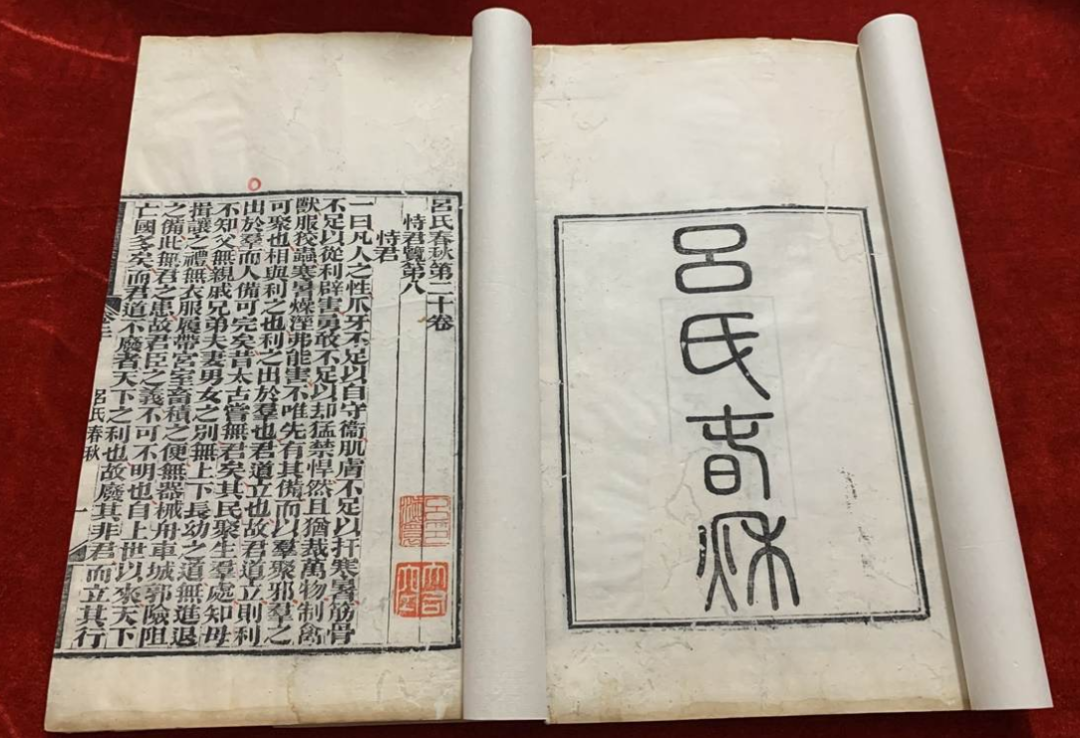 呂氏春秋
呂氏春秋第二十卷
恃君覽第八
恃君
一曰凡人之性爪牙不足以自守衞肌膚不足以扞寒暑筋骨
不足以從利辟害勇敢不足以却猛禁悍然且猶裁萬物制禽
獸服狡蟲寒暑燥溼弗能害不唯先有其備而以羣聚邪羣之
可聚也相與利之也利之出於羣也君道立也故君道立則利
出於羣而人備可完矣昔太古嘗無君矣其民聚生羣處知母
不知父無親戚兄弟夫妻男女之別無上下長幼之道無進退
揖讓之禮無衣服履帶宮室畜積之便無器械舟車城郭險阻
之備此無君之患故君臣之義不可不明也自上世以來天下
亡國多矣而君道不廢者天下之利也故廢其非君而立其行
呂氏春秋
一